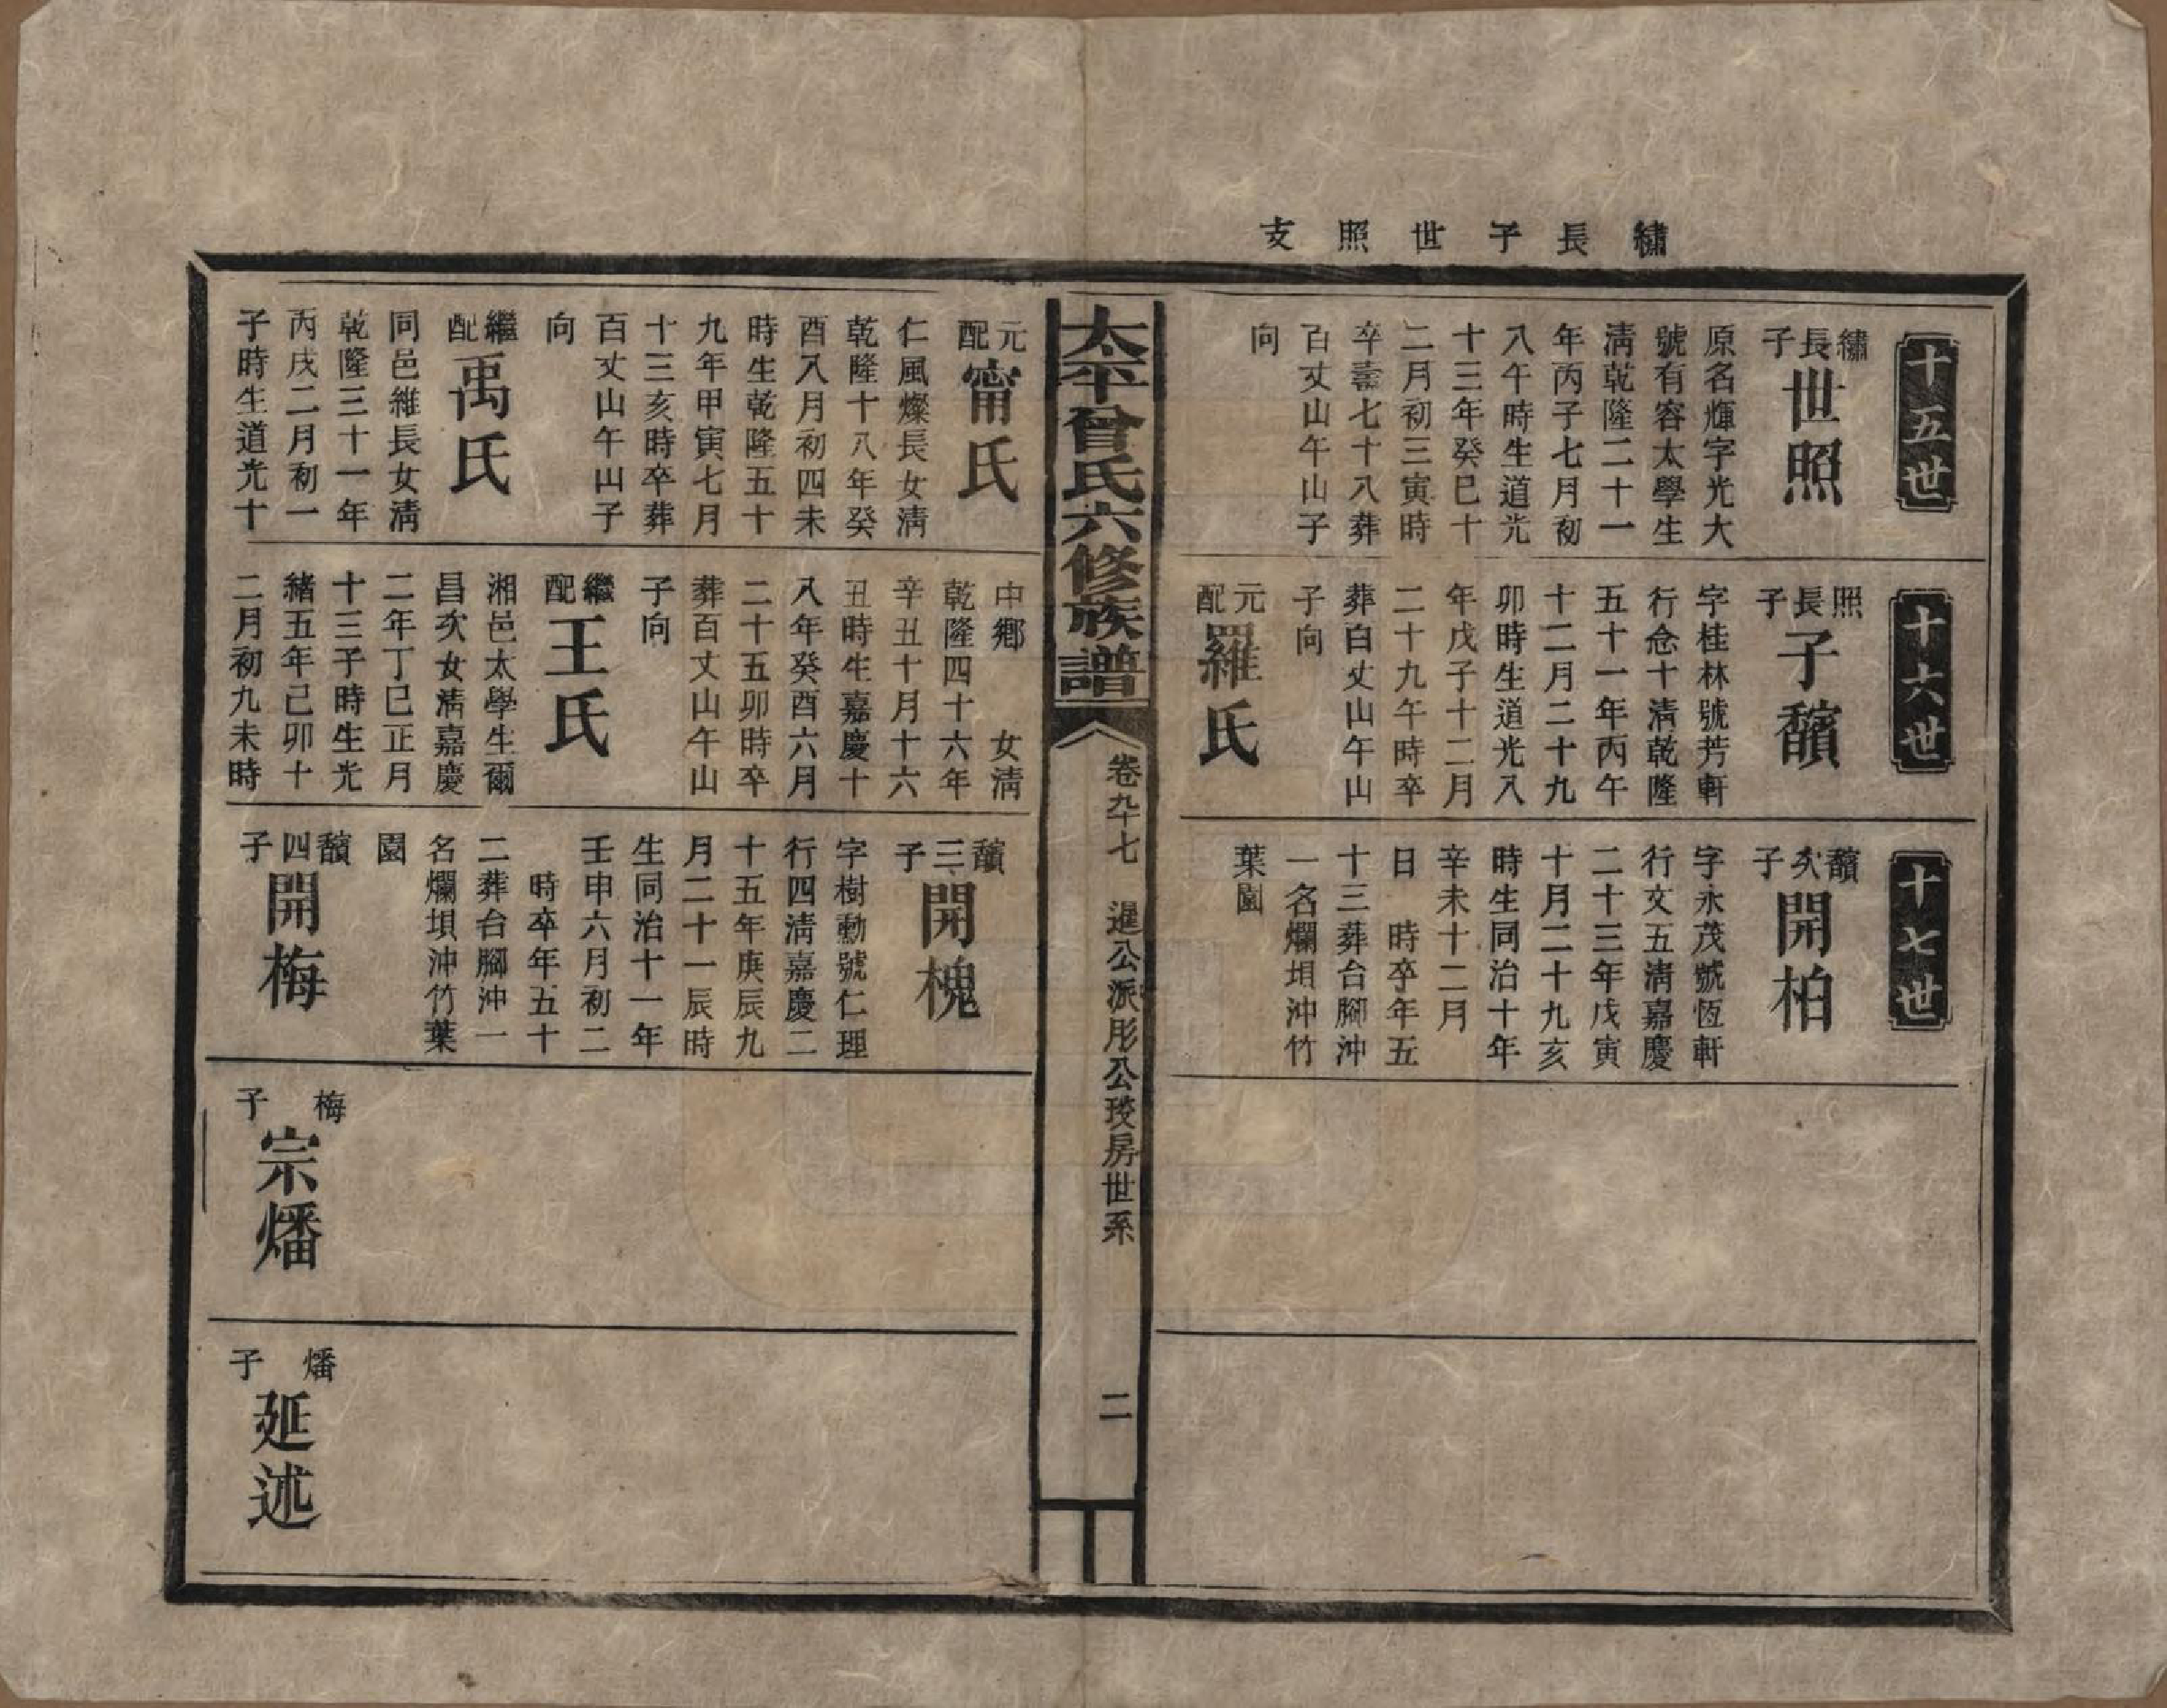 繡長子世照支
十五世
繡長子
世照
原名輝字光大
號有容太學生
淸乾隆二十一
年丙子七月初
八午時生道光
十三年癸巳十
二月初三寅時
卒壽七十八葬
百丈山午山子
向
十六世
照長子
子馪
字桂林號芳軒
行念十淸乾隆
五十一年丙午
十二月二十九
卯時生道光八
年戊子十二月
二十九午時卒
葬百丈山午山
子向
元配
羅氏
十七世
馪次子
開柏
字永茂號恆軒
行文五淸嘉慶
二十三年戊寅
十月二十九亥
時生同治十年
辛未十二月
日 時卒年五
十三葬台腳沖
一名爛垻沖竹
葉園
太平曾氏六修族譜
卷九十七 暹公派彤公琰房世系
二
元配
甯氏
仁風燦長女淸
乾隆十八年癸
酉八月初四未
時生乾隆五十
九年甲寅七月
十三亥時卒葬
百丈山午山子
向
繼配
禹氏
同邑維長女淸
乾隆三十一年
丙戌二月初一
子時生道光十
中鄉 女淸
乾隆四十六年
辛丑十月十六
丑時生嘉慶十
八年癸酉六月
二十五卯時卒
葬百丈山午山
子向
繼配
王氏
湘邑太學生爾
昌次女淸嘉慶
二年丁巳正月
十三子時生光
緒五年己卯十
二月初九未時
馪三子
開槐
字樹勳號仁理
行四淸嘉慶二
十五年庚辰九
月二十一辰時
生同治十一年
壬申六月初二
時卒年五十
二葬台腳沖一
名爛垻沖竹葉
園
馪四子
開梅
梅子
宗燔
燔子
延述